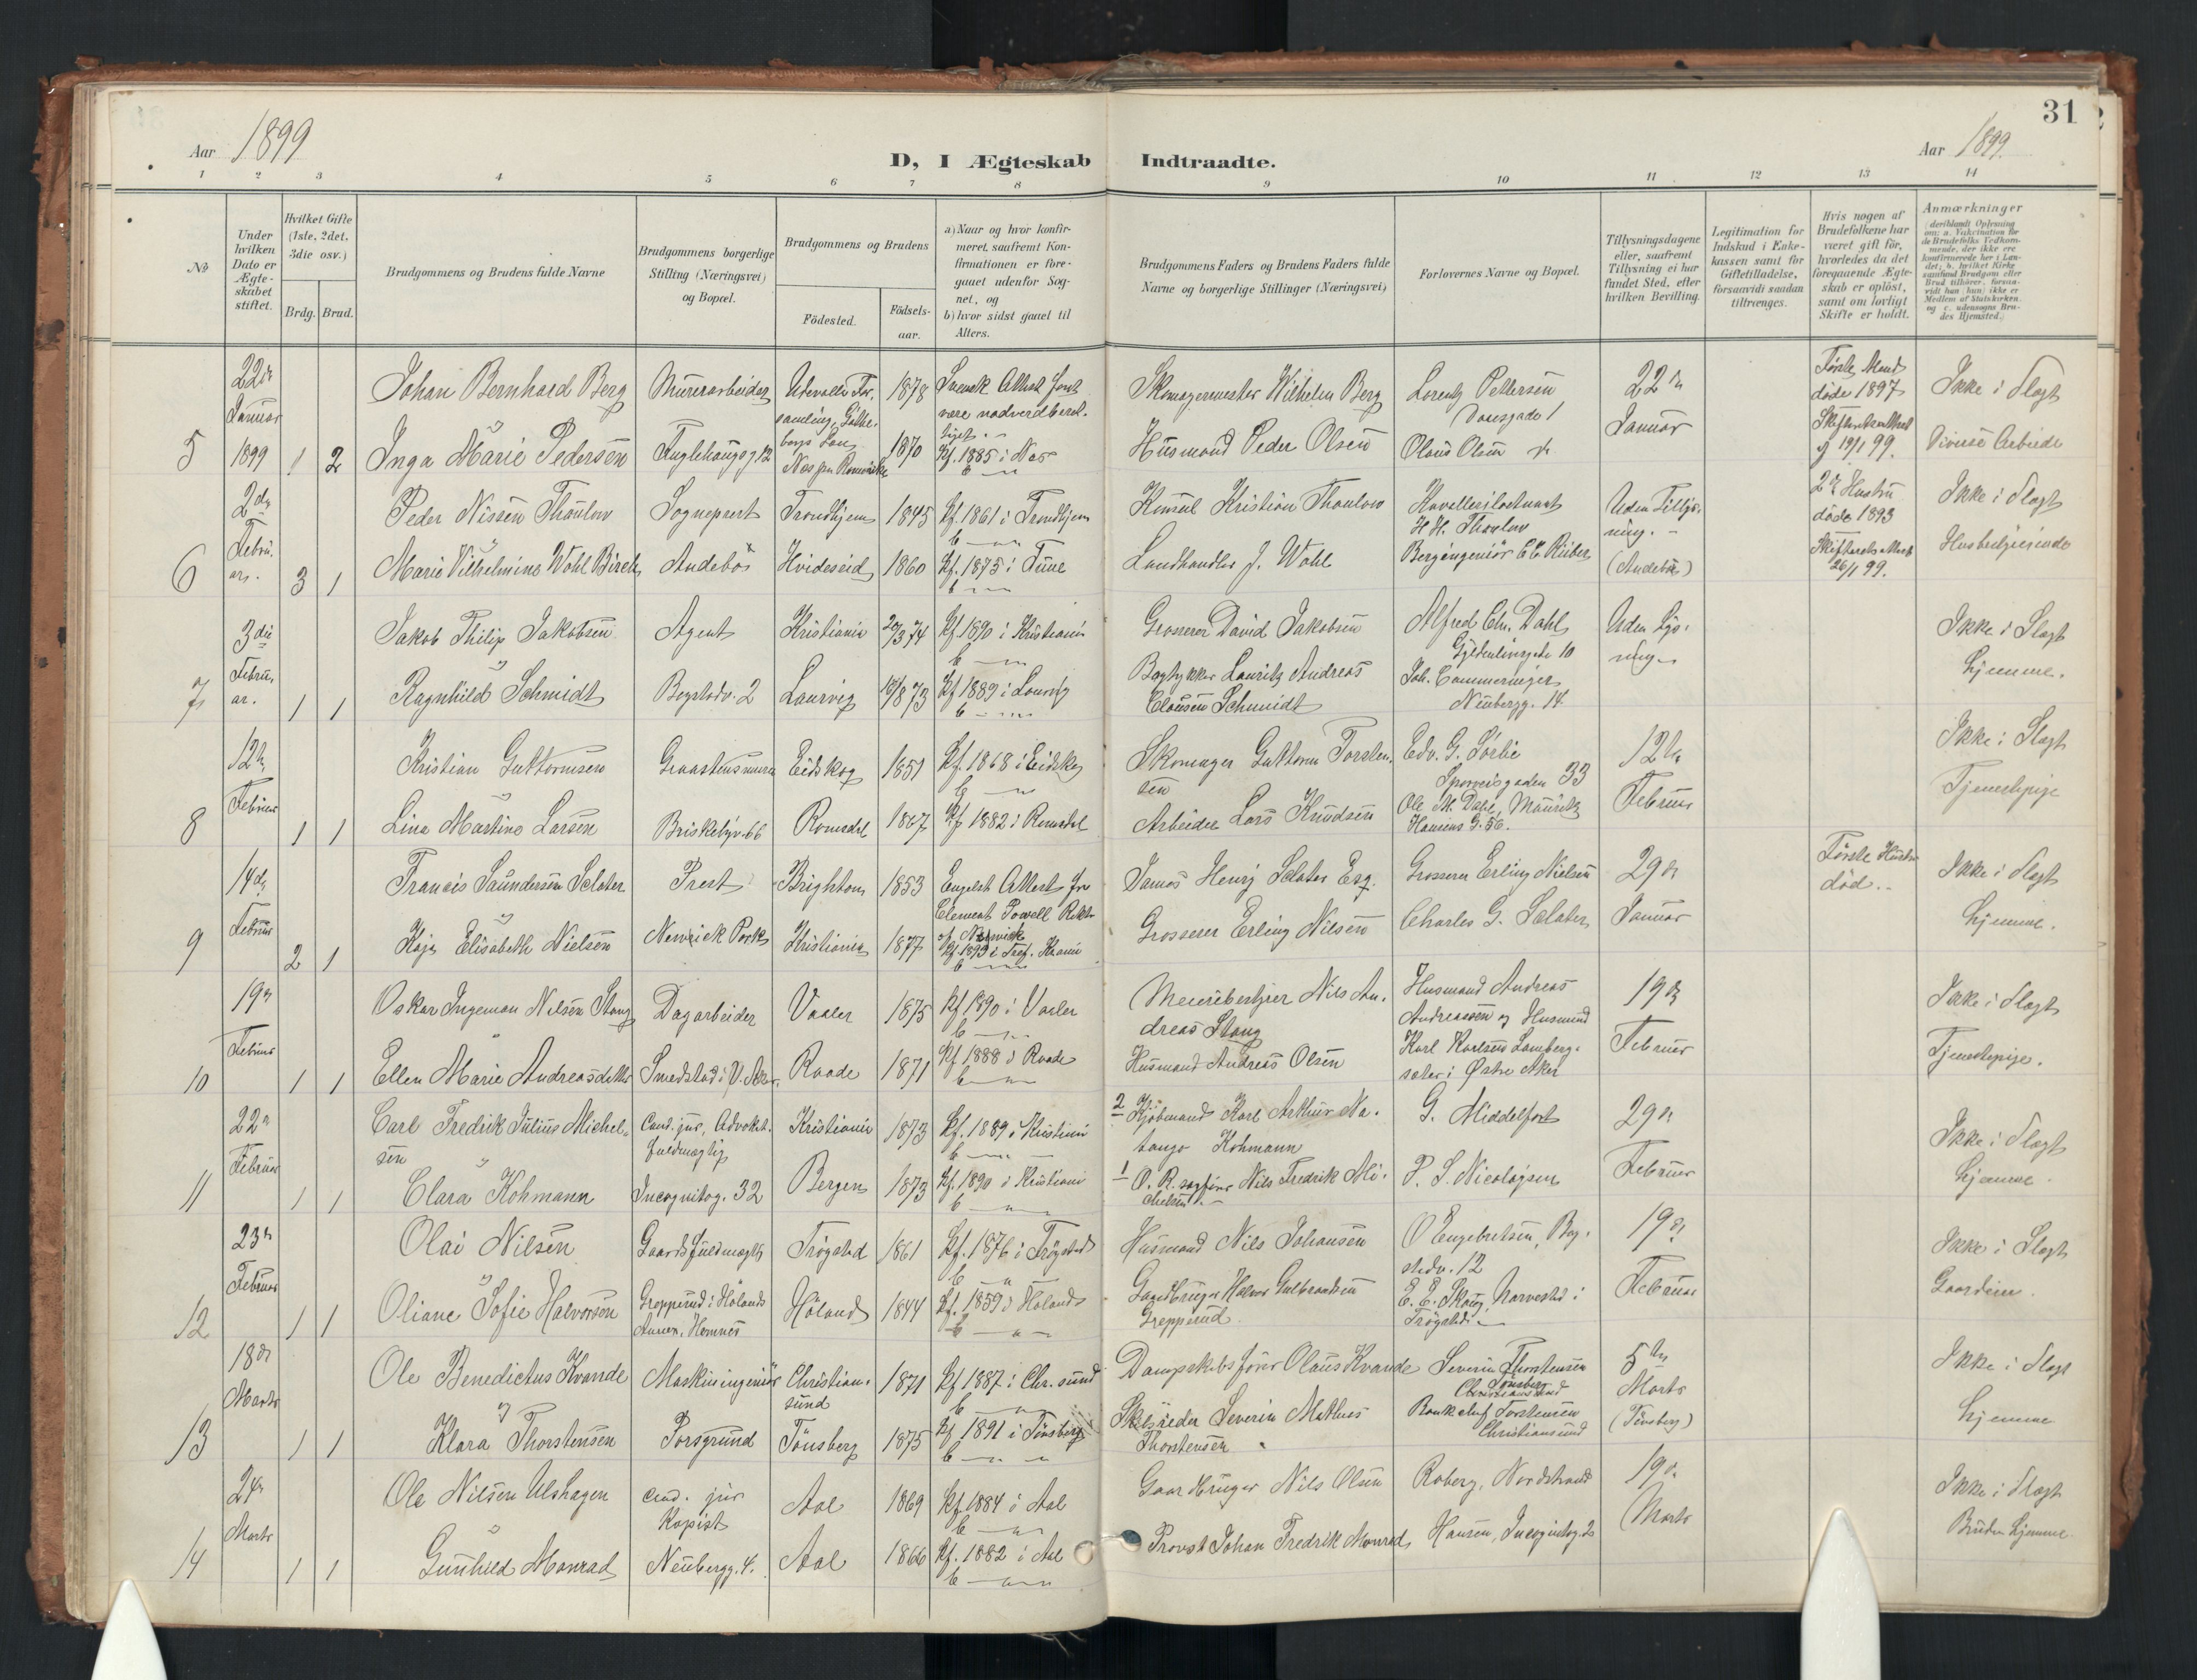 31
Aar 1899
D, I Ægteskab Indtraadte.
Aar 1899.
1 2 3 4 5 6 7 8 9 10 11 12 13 14
No
Under hvilken Dato er Ægteskabet stiftet.
Hvilket Gifte (1ste, 2det, 3die osv.)
Brdg. Brud.
Brudgommens og Brudens fulde Navne
Brudgommens borgerlige Stilling (Næringsvei) og Bopæl.
Brudgommens og Brudens
Födested.
Födselsaar.
a) Naar og hvor konfirmeret, saafremt Konfirmationen er foregaaet udenfor Sognet, og
b) hvor sidst gaaet til Alters.
Brudgommens Faders og Brudens Faders fulde Navne og borgerlige Stillinger (Næringsvei)
Forlovernes Navne og Bopæl.
Tillysningsdagene eller, saafremt Tillysning ei har fundet Sted, efter hvilken Bevilling.
Legitimation for Indskud i Enkekassen samt for Giftetilladelse, forsaavidt saadan tiltrænges.
Hvis nogen af Brudefolkene har været gift för, hvorledes da det foregaaende Ægteskab er oplöst, samt om lovligt Skifte er holdt.
Anmærkninger
5 22de Januar 1899 1 2
Johan Bernhard Berg Murerarbeider 1878
Skomagermester Wilhelm Berg Lorentz Pettersen Daasgade 1 22de Januar
Første Mand døde 1897 Ikke i Slægt
Inga Marie Pedersen Fuglehaugg 12 Nes paa Romerike 1870 Kf. 1885 i Nes
Husmand Peder Olsen Olaus Olsen Diverse Arbeide
6 2de Februar. 3 1
Peder Nissen Thaulow Sogneprest Trondhjem 1845 Kf. 1861 i Trondhjem
Konsul Kristian Thaulow H. H. Thaulow Uden Tillysning.
2den Hustru døde 1893 Ikke i Slægt
Marie Vilhelmine Wohl Birch Andebø Hvideseid 1860 Kf. 1875 i Tune
Landhandler J. Wohl Bergingeniør (Andebø) 26/1 99. Husbestyrerinde
7 3die Februar. 1 1
Jakob Philip Jakobsen Agent Kristiania 20/3 74 Kf 1890 i Kristiania
Grosserer David Jakobsen Alfred Chr. Dahl Gyldenløvesgade 10 Uden Lysning Ikke i Slægt
Ragnhild Schmidt Bogstadv. 2 Laurvig 73 Kf 1889 i Laurvig
Bogtykker Lauritz Andreas Clausen Schmidt Joh. Cammermeyer Neubergg. 14 hjemme.
8 12te Februar 1 1
Kristian Guttormsen Graastensmurer Eidskog 1851 Kf. 1868 i Eidskog
Skomager Guttorm Torstensen Edv. G. Sørlie Sporveisgaden 33 12te Februar Ikke i Slægt
Lina Martine Larsen Briskebyv. 66 Romsdal 1867 Kf 1882 i Romsdal
Arbeider Lars Knudsen Ole M. Dahl, Mauritz Hansens G. 56. Tjenestepige
9 14de Februar 2 1
Francis Saundersen Sclater Prest Brighton 1853 Engelsk Attest fra Clement Powell Rektor af Newick
James Henry Sclater Esq. Grosserer Erling Nielsen 29de Januar Første Hustru død. Ikke i Slægt
Kaja Elisabeth Nielsen Newick Park Kristiania 1877 Kf. 1893 i Tref. Krania
Grosserer Erling Nilsen Charles G. Sclater hjemme.
10 19de Februar 1 1
Oskar Ingeman Nilsen Stang Dagarbeider Vaaler 1875 Kf 1890 i Vaaler
Meieribestyrer Nils Andreas Stang Husmand Andreas Andreassen og Husmand 19de Februar Ikke i Slægt
Ellen Marie Andreasdatter Smedstad i V. Aker. Raade 1871 Kf 1888 i Raade
Husmand Andreas Olsen Karl Karlsen Lambergsæter i Østre Aker Tjenestepige.
11 22de Februar 1 1
Carl Fredrik Julius Michelsen Cand. jur., Advokat. fuldmægtig Kristiania 1873 Kf. 1889 i Kristiania
2 Kjøbmand Karl Arthur Natango Kohmann G. Middelfart 29de Februar Ikke i Slægt
Clara Kohmann Incognitog. 32 Bergen 1873 Kf. 1890 i Kristiania
1 O. R. sagfører Nils Fredrik Michelsen P. S. Nicolaysen hjemme.
12 23de Februar 1 1
Olai Nilsen Gaardsfuldmægtig Trøgstad 1861 Kf. 1876 i Trøgstad
Husmand Nils Johansen O Engebretsen, Bogstadv. 12 19de Februar Ikke i Slægt
Oliane Sofie Halvorsen Grepperud i Hølands Annex, Hemnes Høland 1844 Kf. 1859 i Høland
Gaardbruger Halvor Gulbrandsen Grepperud E. E. Skaug, Narvestad i Trøgstad Gaardeier.
13 18de Marts 1 1
Ole Benedictus Kvande Maskiningeniør Christiansund 1871 Kf 1887 i Chr. sund
Dampskibsfører Olaus Kvande Severin Thorstensen Tønsberg 5te Marts Ikke i Slægt
Klara Thorstensen Porsgrund Tönsberg 1875 Kf 1891 i Tönsberg
Skibsreder Severin Mathias Thorstensen Bankchef Torstensen Christiansund (Tönsberg) hjemme
14 24de Marts 1 1
Ole Nilsen Ulshagen Cand. jur Kopist Aal 1869 Kf 1884 i Aal
Gaardbruger Nils Olsen Roberg, Nordstrand 19de Marts Ikke i Slægt
Gunhild Monrad Neubergg. 4. Aal 1866 Kf. 1882 i Aal
Provst Johan Fredrik Monrad Hansen, Incognitog. 2 Bruden hjemme.